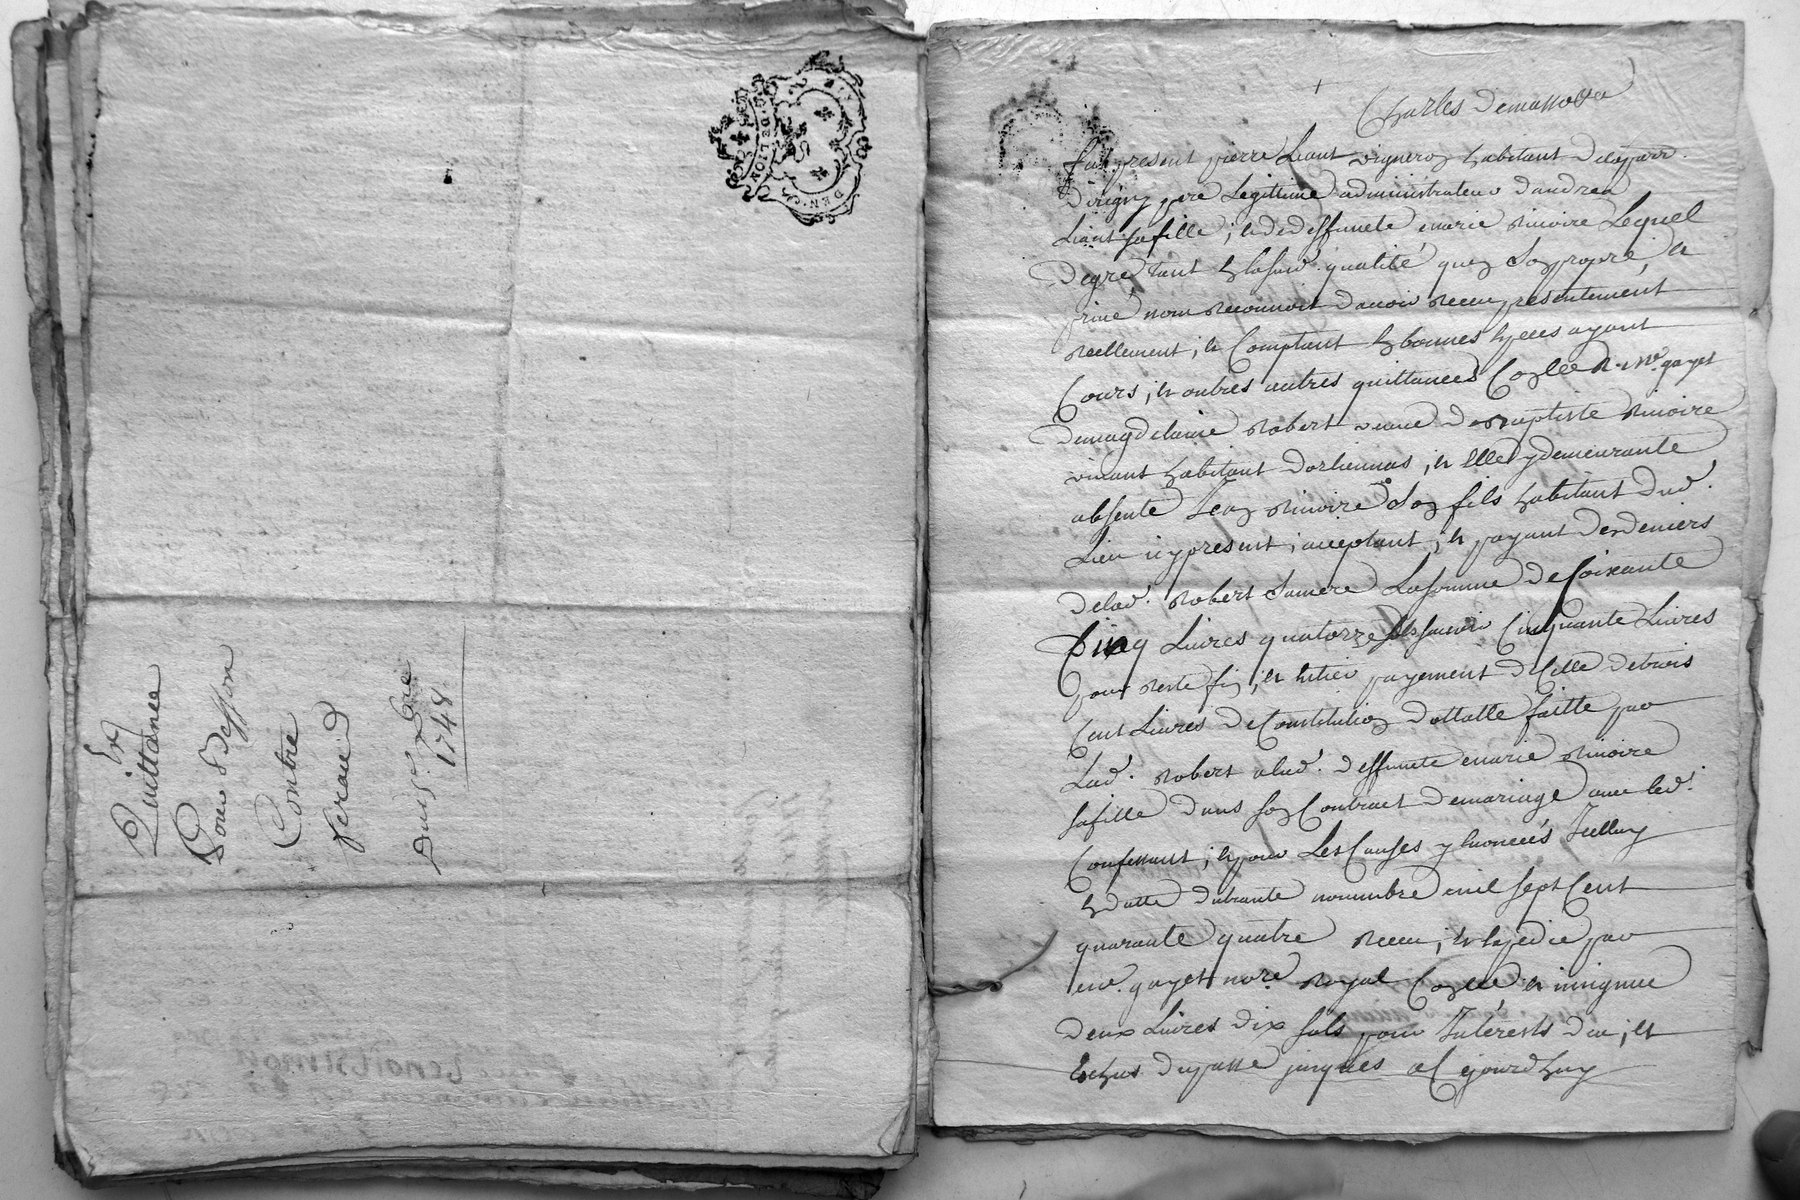 GEN. DE LION
Quittance
Pour Besson
Contre
Peraud
Du 15 xbre
1748
Charles
fut present pierre Liant vigneron habitant
d'irigny pere Legittime administrateur d'andrea
Liant sa fille; et de deffuncte marie Rivoire Lequel
degré tant en lasusd. qualité quen son propre, et
privé nom reconnoit d'avoir receu presentement
reellement; et Comptant en bonnes especes ayant
Cours; et outres autres quittances Coglle R. Me. gayet
demagdelaine Robert veuve de Baptiste Rivoire
vivant habitant d'orliennas; et Elle y demeurante
absente Jean Rivoire son fils habitant dud.
Lieu icy present; acceptant; et payant des deniers
delad. Robert samere Lasomme de soixante
Cinq Livres quatorze sols savoir Cinquante Livres
pour reste fin; et entier payement de Celle detrois
Cent Livres de Constitution dottalle faitte par
Lad. Robert alad. deffuncte marie Rivoire
safille dans son Contract demariage avec led.
Confessant; et pour Les Causes y Enoncées Icelluy
en datte dutrente novembre mil sept Cent
quarante quatre receu; et expedié par
me. gayet nore. Royal Coglle et
deux Livres dix sols pour Interests dus; et
Echus dupassé jusques a Cejourdhuy